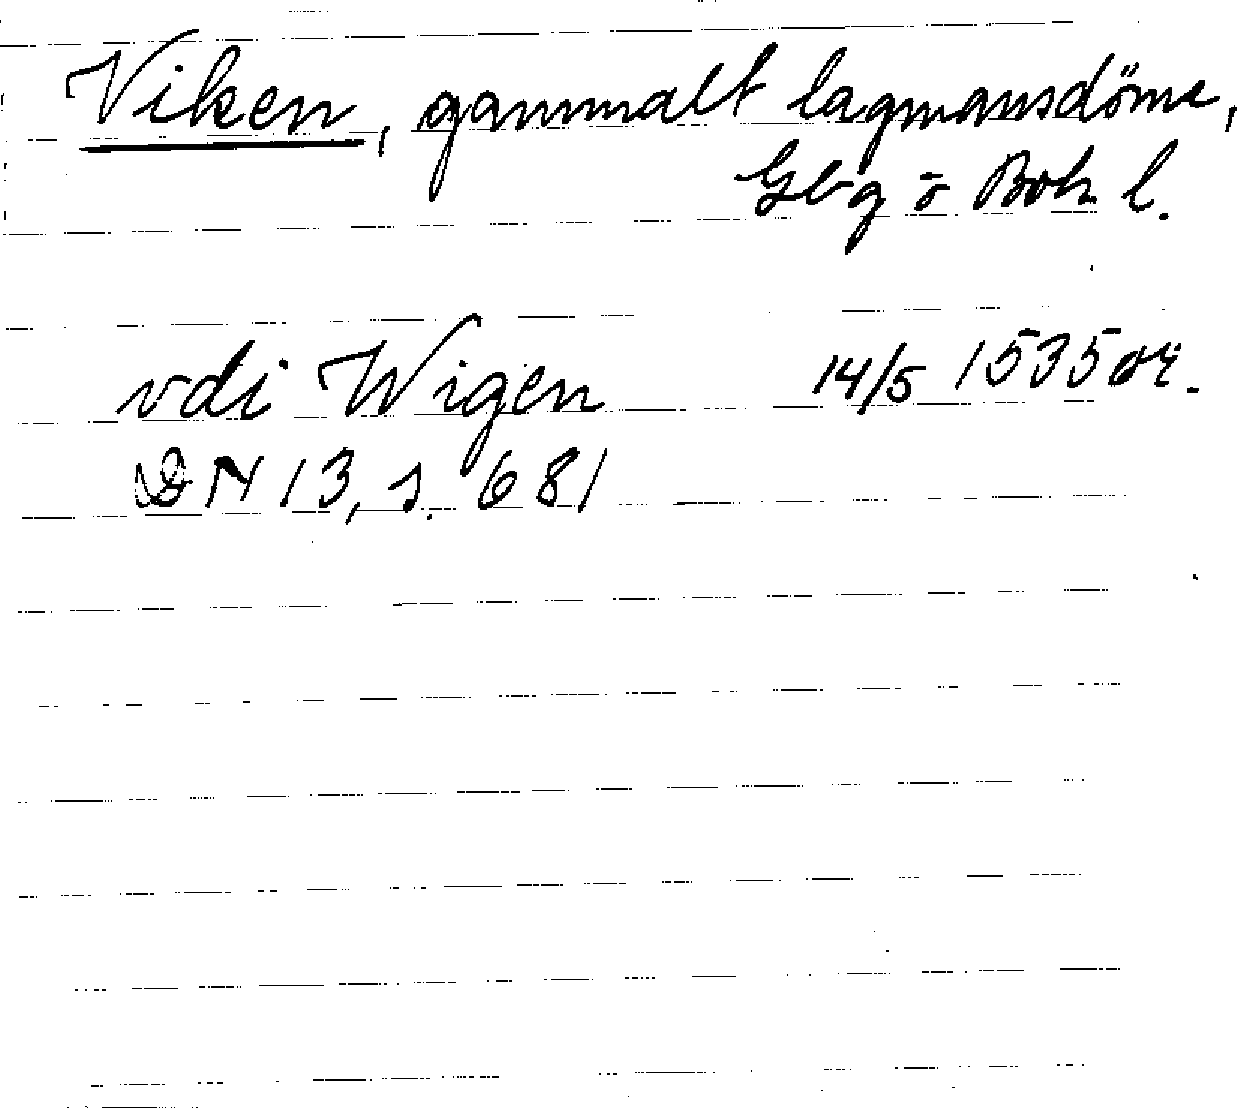 Viken, gammalt lagmansdöme,
Gbg o Boh l.
vdi Wigen 14/5 1535 or.
DN 13, s. 681